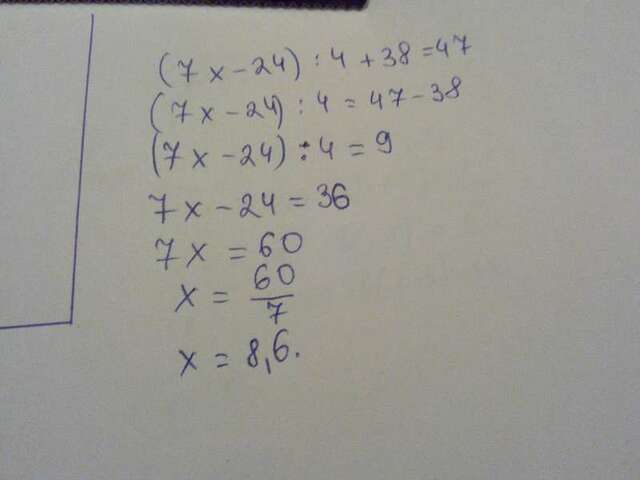 (7x-24):4+38=47
(7x-24):4=47-38
(7x-24):4=9
7x-24=36
7x=60
x=60/7
x=8,6.